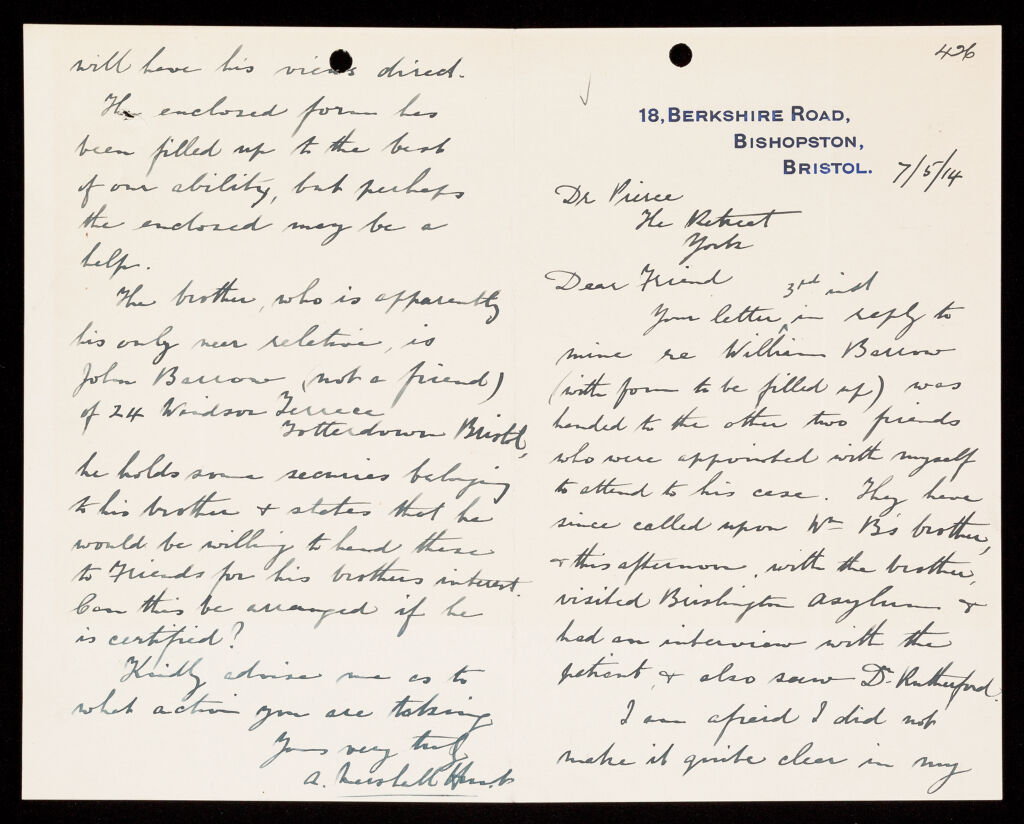 426
18, BERKSHIRE ROAD,
BISHOPSTON,
BRISTOL.
7/5/14
Dr Pierce
The Retreat
York
Dear Friend
3rd inst
Your letter, in reply to
mine re William Barrow
(with form to be filled up) was
handed to the other two friends
who were appointed with myself
to attend to his case. They have
since called upon Wm B's brother,
& this afternoon, with the brother,
visited Brislington Asylum &
had an interview with the
patient, & also saw Dr. Rutherford.
I am afraid I did not
make it quite clear in my
will have his views direct.
The enclosed form has
been filled up to the best
of our ability, but perhaps
the enclosed may be a
help.
The brother, who is apparently
his only near relative, is
John Barrow (not a friend)
of 24 Windsor Terrace
Totterdown Bristol,
he holds some securies belonging
to his brother & states that he
would be willing to hand these
to Friends for his brothers interest.
Can this be arranged if he
is certified?
Kindly advise me as to
what action you are taking
Yours very truly
A. Marshall